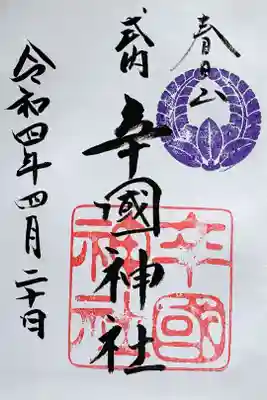 春日山
式内
辛國神社
辛國
神社
令和四年四月二十日